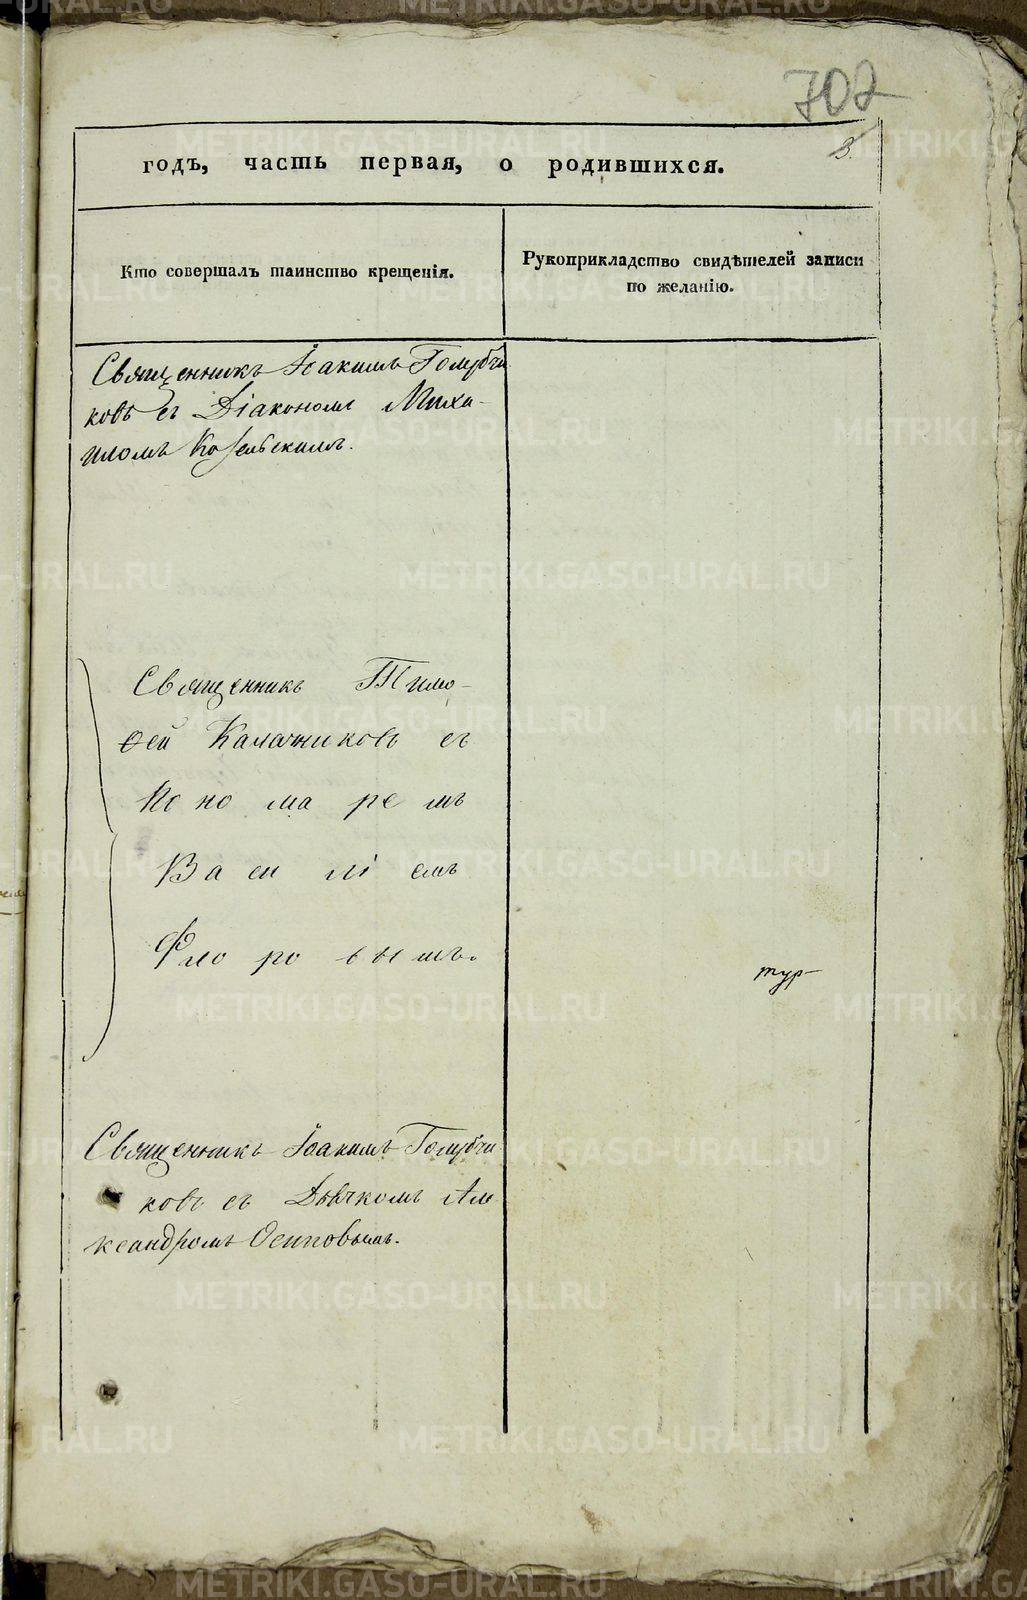 702
3.
годъ, часть первая, о родившихся.
Кто совершалъ таинство крещенія.
Рукоприкладство свидѣтелей записи
по желанію.
Священникъ Іоакимъ Голубчи
ковъ съ Діакономъ Миха-
иломъ Козельскимъ.
Священникъ Тимо-
ѳей Калашниковъ съ
Пономаремъ
Василіемъ
Флоровымъ.
тур-
Священникъ Іоакимъ Голубчи
ковъ съ Дьячкомъ Але
ксандромъ Осиповымъ.
METRIKI.GASO-URAL.RU